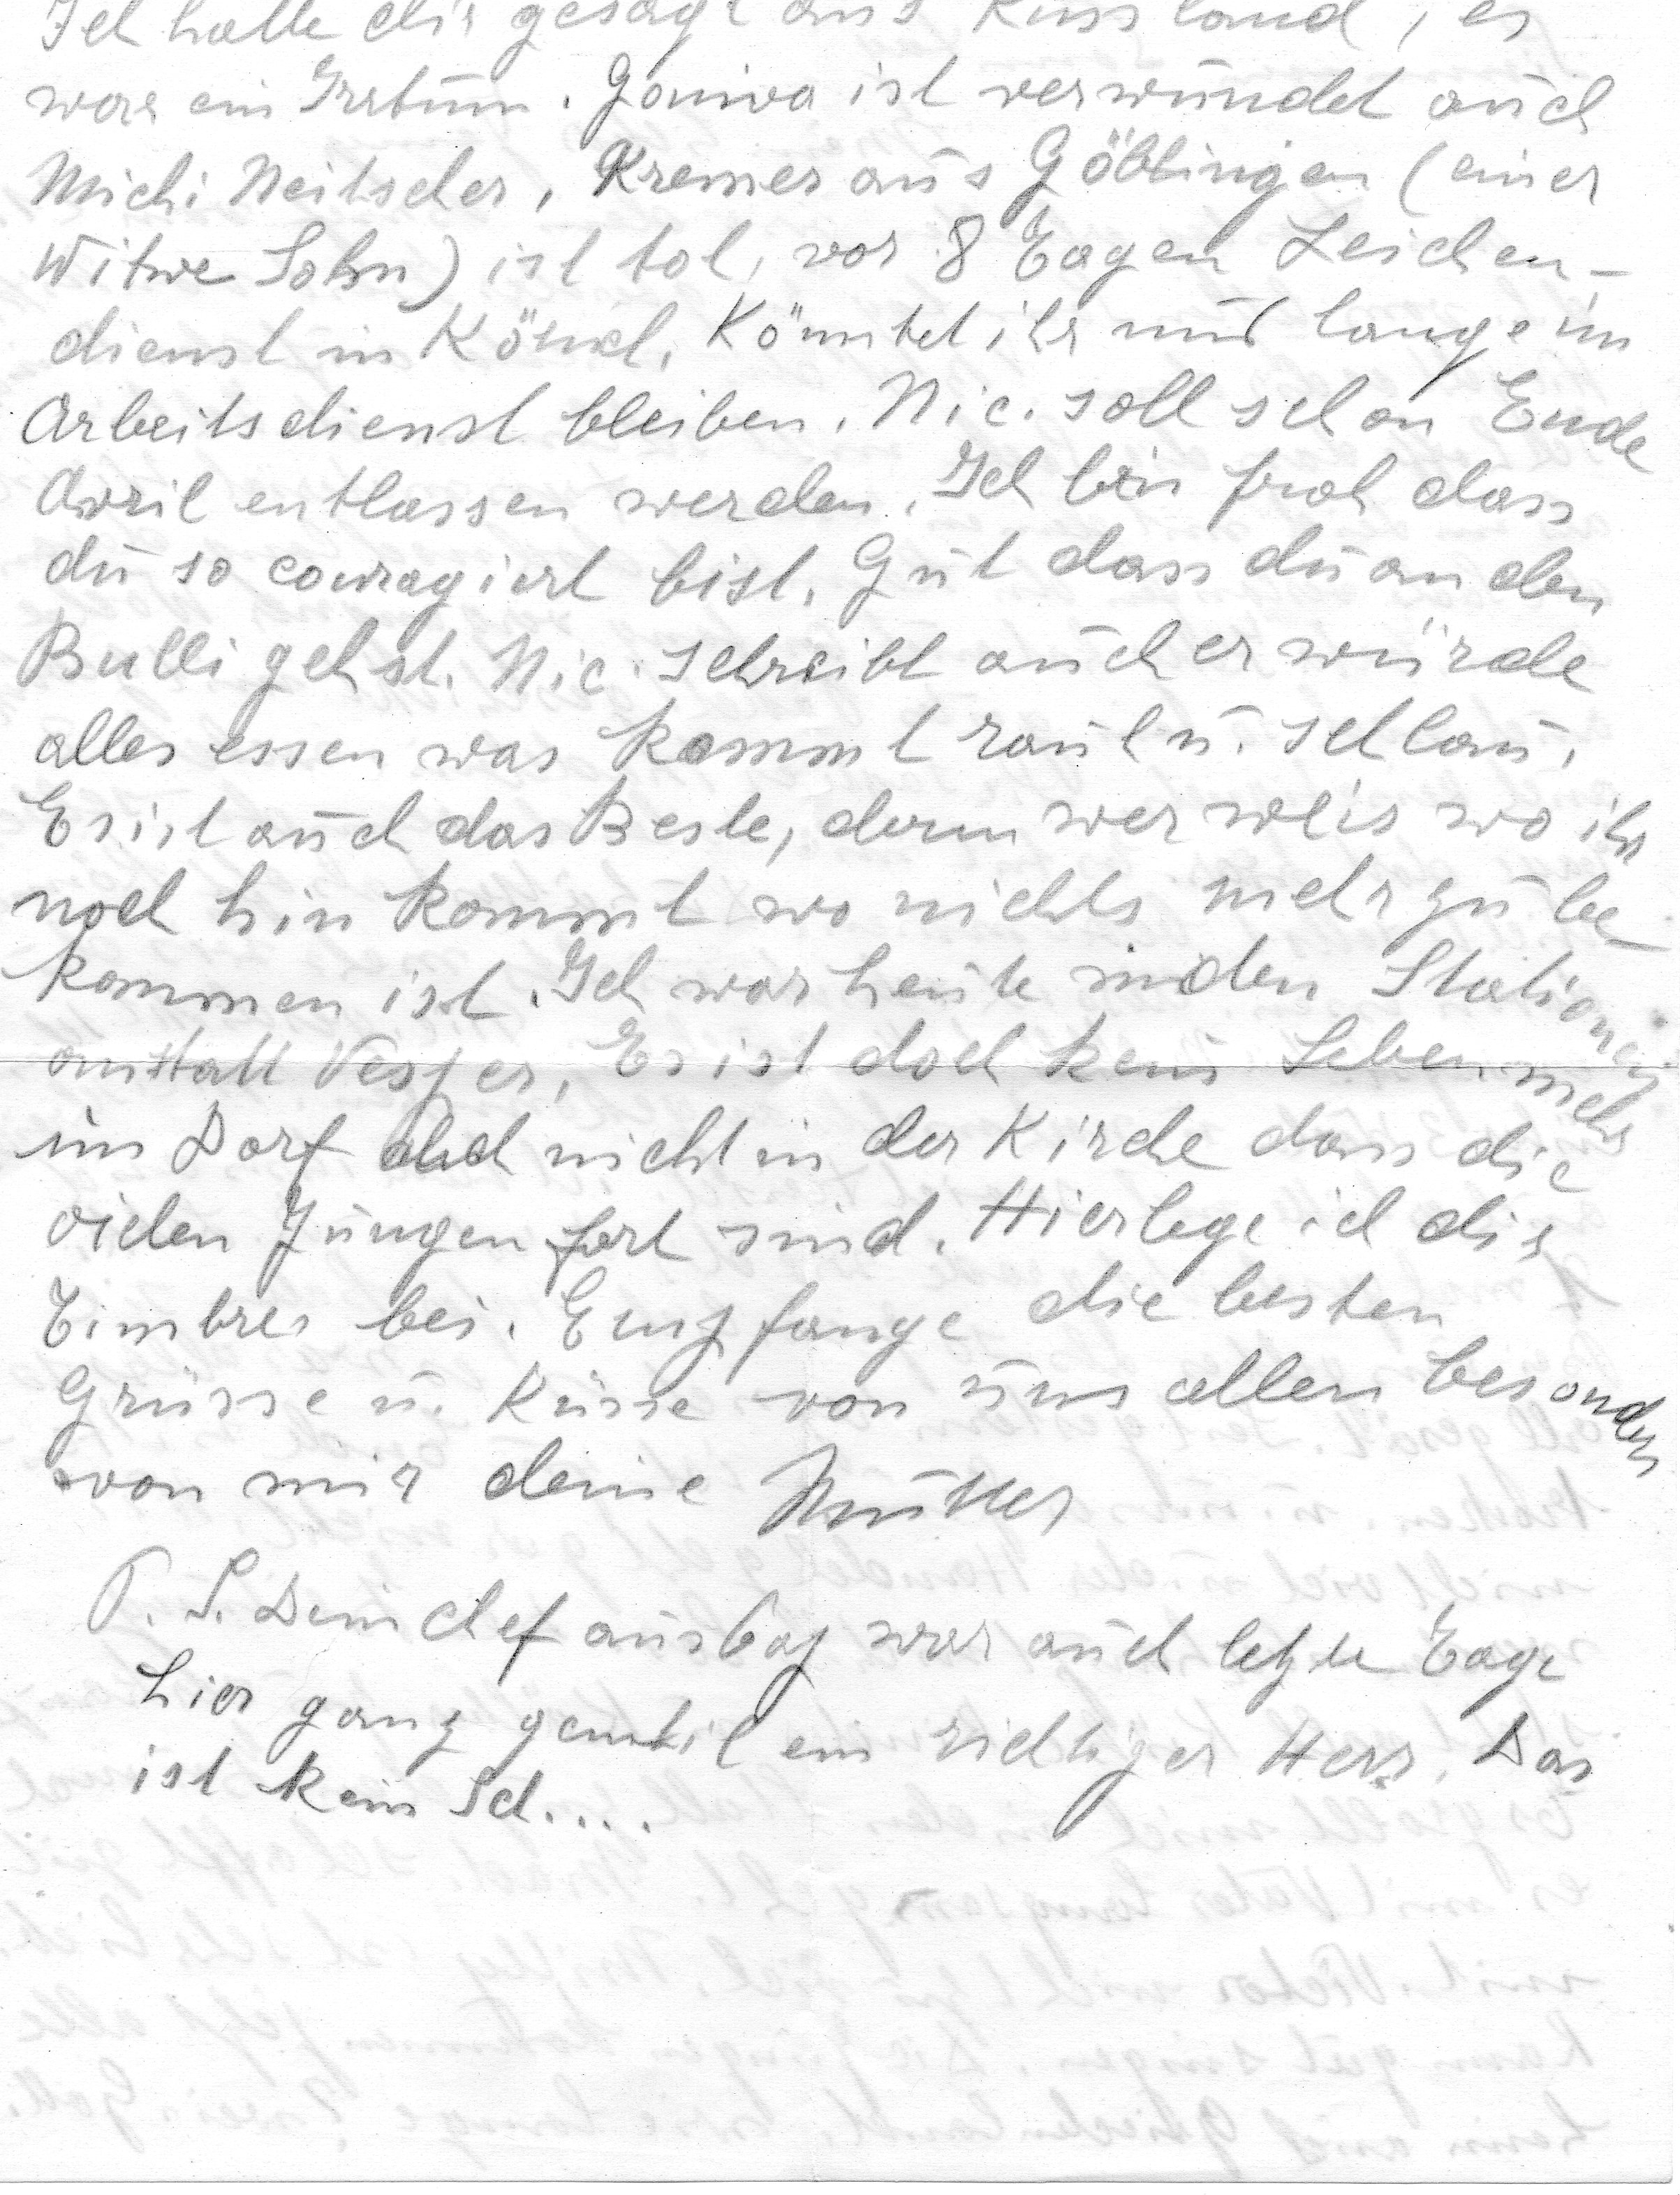 Ich hatte dir gesagt aus Russland, er
war ein Irrtum. Goniva ist verwundet auch
Michi Neitscher, Kremer aus Göblingen (einer
Witwe Sohn) ist tot, vor 8 Tagen Leichen-
dienst in Körich. Könntet ihr nur lange im
Arbeitsdienst bleiben. Nic. soll schon Ende
April entlassen werden. Ich bin froh dass
du so couragiert bist. Gut dass du an den
Bulli gehst. Nic. schreibt auch er würde
alles essen was kommt rauh u. schlau.
Es ist auch das Beste, denn wer weis wo ihr
noch hin kommt wo nichts mehr zu be
kommen ist. Ich war heute in den Stationen
anstatt Vesper. Es ist doch kein Leben mehr
im Dorf und nicht in der Kirche dass die
vielen Jungen fort sind. Hier lege ich dir
Timbres bei. Empfange die besten
Grüsse u. Küsse von uns allen besonders
von mir deine Mutter
P. S. Dein chef aus war auch letzte Tage
hier ganz gentil ein richtiger Herr. Das
ist kein Sch....